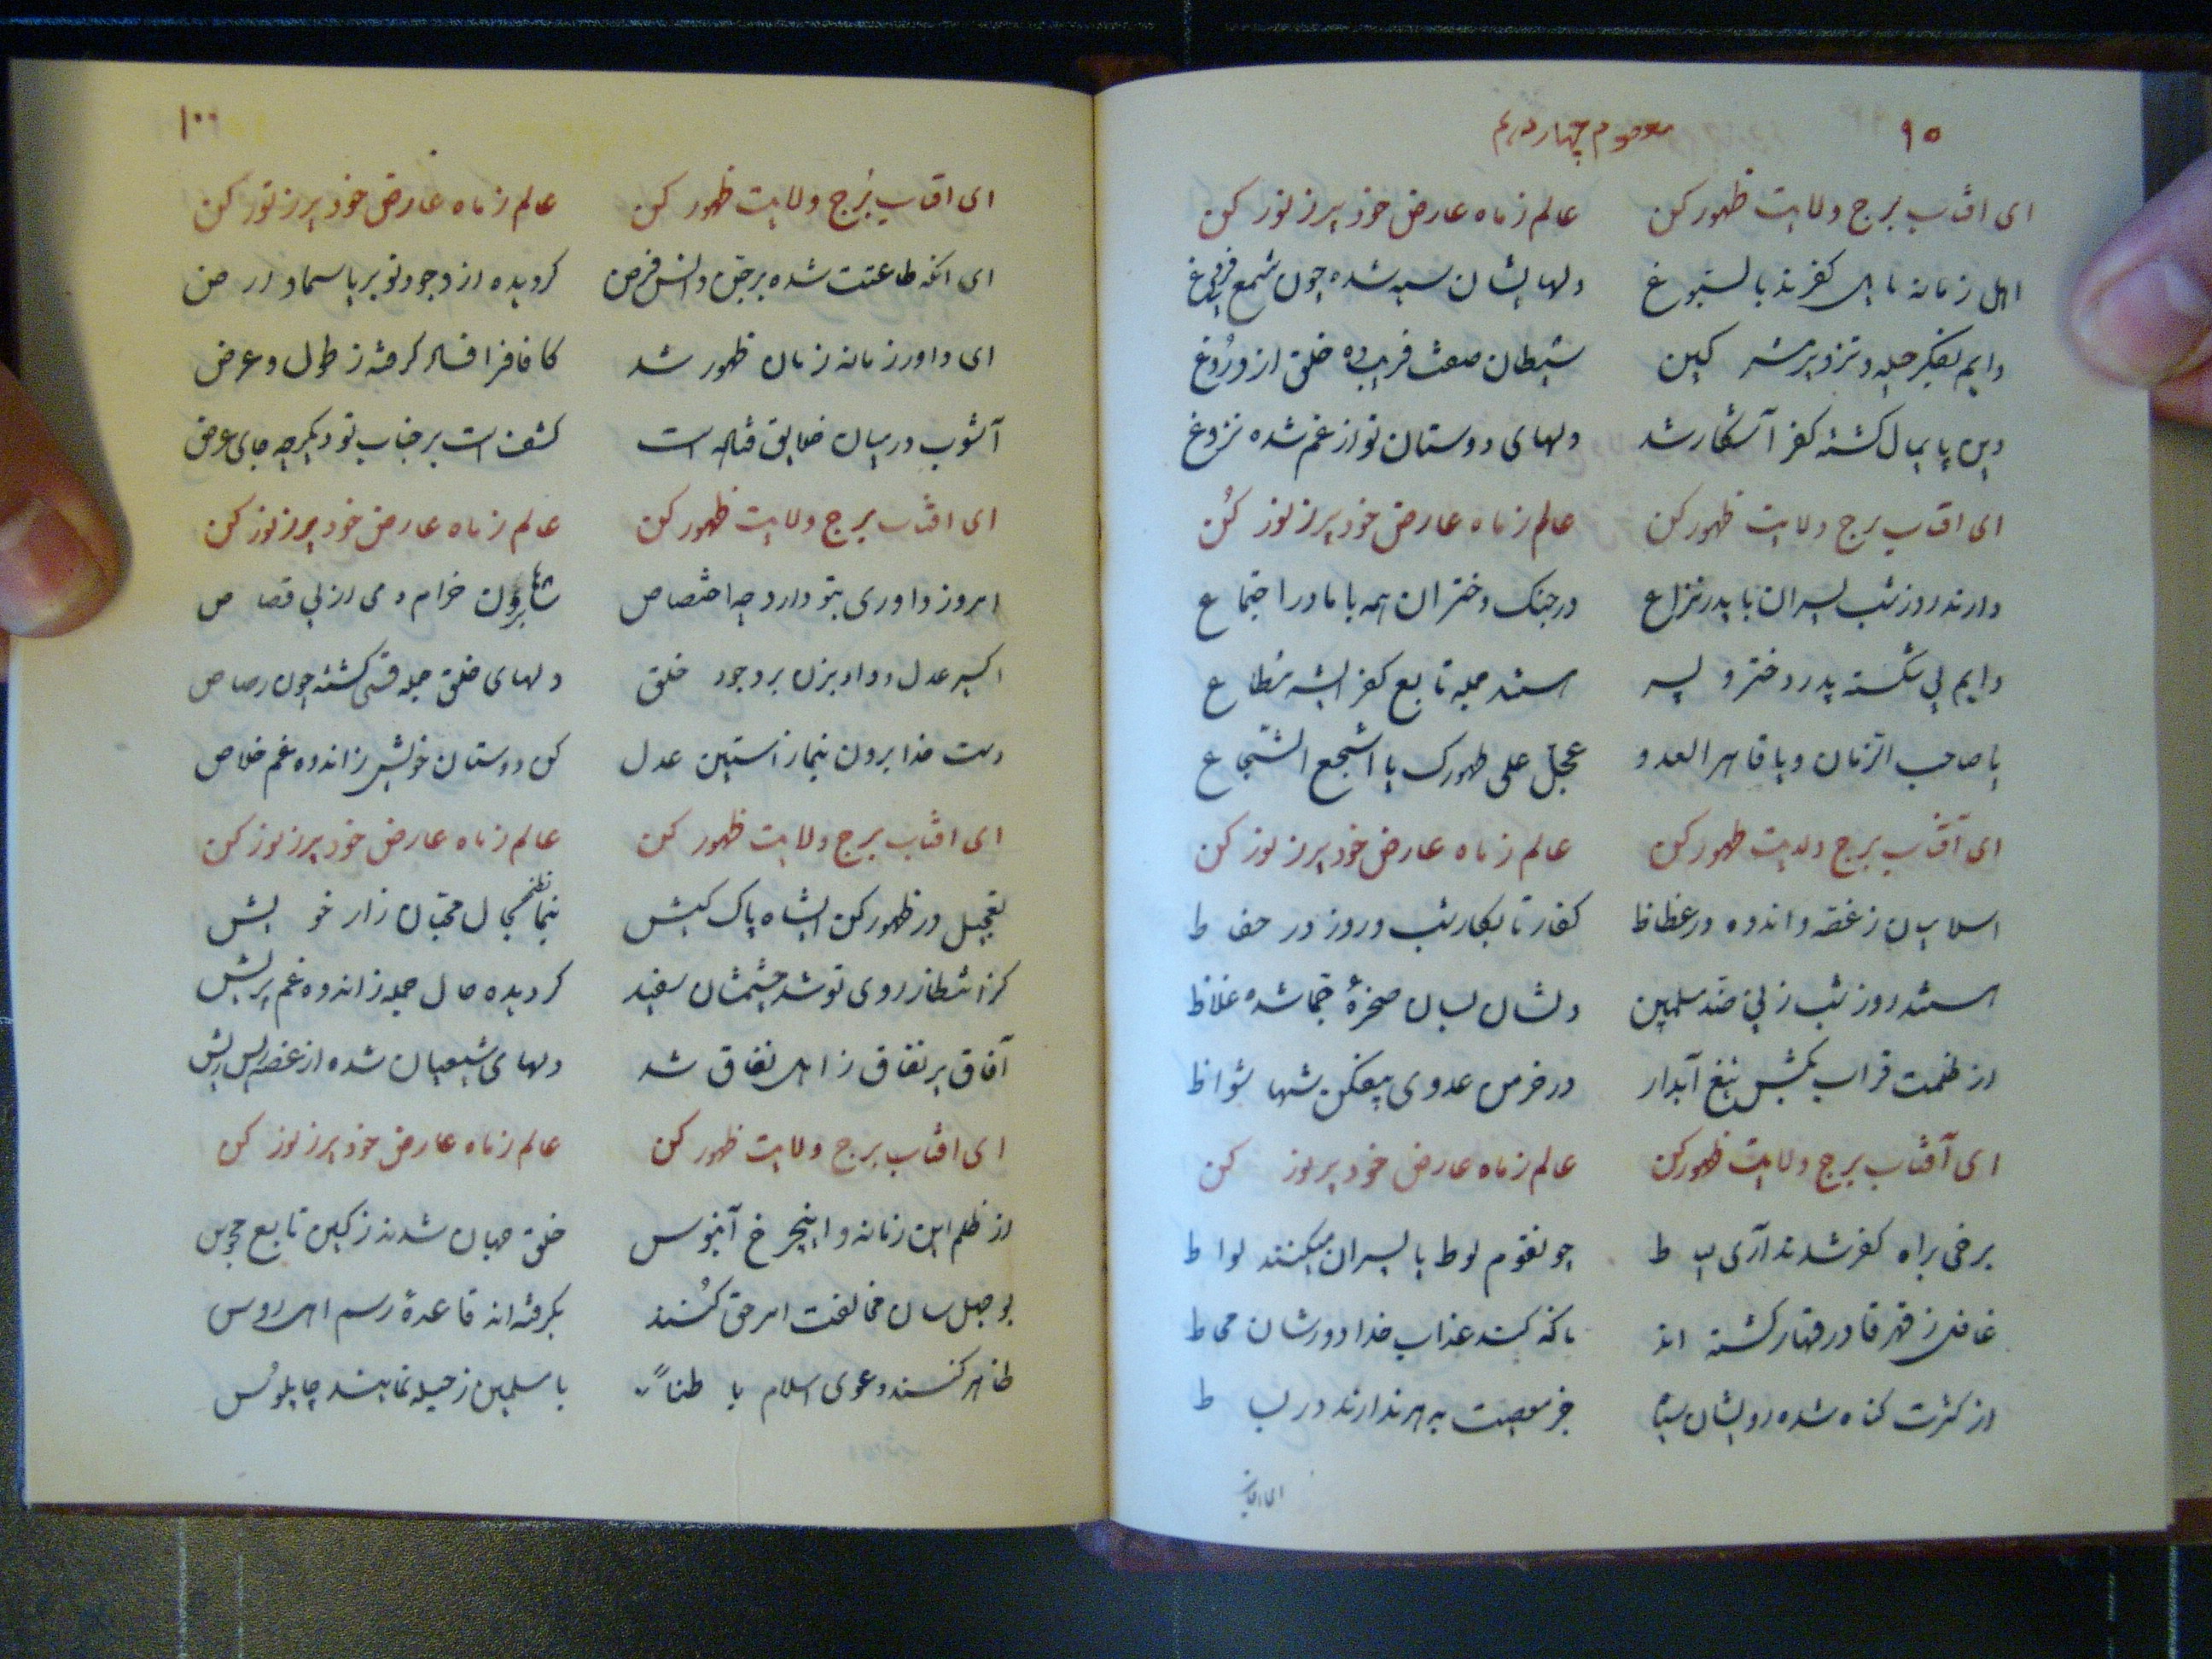 ۹۵ معصوم چهاردهم
ای افتاب برج ولایت ظهور کن عالم ز ماه عارض خود پر ز نور کن
اهل زمانه مایل کفرند بالتبوغ دلهایشان سیه شده چون شمع
دایم بفکر حیله و تزویر کین شیطان صفت فریب ده خلق از دروغ
دین پایمال کشته کفر آشکار شد دلهای دوستان تو از غم شده نزوغ
ای افتاب برج ولایت ظهور کن عالم ز ماه عارض خود پر ز نور کُن
دارند روز شب پسران با پدر نزاع در جنک دختران همه با مادر اجتماع
دایم پی شکست پدر دختر و پسر هستند جمله تابع کفر
یا صاحب الزمان و یا قاهر العدو عجّل علی ظهورک یا اشجع الشجاع
ای آفتاب برج ولایت ظهور کن عالم ز ماه عارض خود پر ز نور کن
اسلامیان ز غصه و اندوه در غظاظ کفار نابکار شب و روز در حفاظ
هستند روز شب ز پی ضد مسلمین دلشان بسان صخرهٔ جما شده غلاظ
از ظلمت قراب بکش تیغ آبدار در خرمن عدوی بیفکن شها شواظ
ای آفتاب برج ولایت ظهور کن عالم ز ماه عارض خود پر نور کن
برخی براه کفر شدند آری چو قوم لوط با پسران میکنند لواط
غافل ز قهر قادر قهار کشته اند باکه کند عذاب خدا دورشان محاط
از کثرت کناه شده رویشان سیاه جز معصیت بهر ندارند در بساط
۱۰۰
ای افتاب بُرج ولایت ظهور کن عالم ز ماه عارض خود پر ز نور کن
ای انکه طاعتت شده بر جن و انس فرض کردیده از وجود تو بر پا سما و ارض
ای داور زمانه زمان ظهور شد کافاق را فساد کرفته ز طول و عرض
آشوب در میان خلایق فتاده است کشف است بر جناب تو دیکر چه جای عرض
ای افتاب برج ولایت ظهور کن عالم ز ماه عارض خود پر ز نور کن
امروز داوری بتو دارد چه اختصاص شاها برون خرام دمی از پی قصاص
اکسیر عدل و داد بزن بر وجود خلق دلهای خلق جمله قسی کشته چون رصاص
دست خدا برون بنما ز استین عدل کن دوستان خویش ز اندوه غم خلاص
ای افتاب برج ولایت ظهور کن عالم ز ماه عارض خود پر ز نور کن
تعجیل در ظهور کن ایشاه پاک کیش بنما نظر بحال محبان زار خویش
کز انتظار روی تو شد چشمشان سفید کردیده حال جمله ز اندوه غم پریش
آفاق پر نفاق ز اهل نفاق شد دلهای شیعیان شده از غصه پس پریش
ای افتاب برج ولایت ظهور کن عالم ز ماه عارض خود پر ز نور کن
از ظلم این زمانه و اینچرخ آبنوس خلق جهان شدند ز کین تابع مجوس
بوجهل سان مخالفت امر حق کُنند بکرفته اند قاعدهٔ رسم اهل روس
ظاهر کنند دعوی اسلام باطناً با مسلمین ز حیله نمایند چاپلوُس